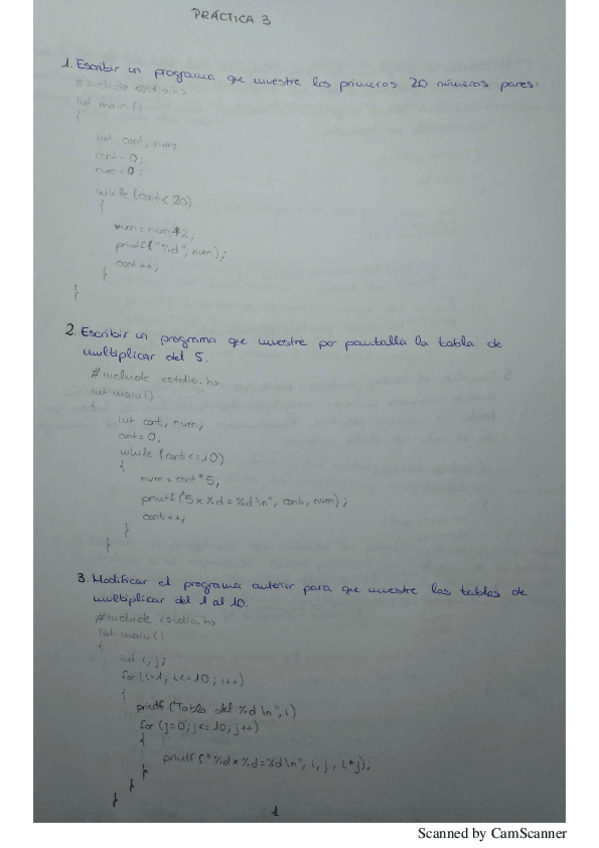 PRÁCTICA 3
1. Escribir un programa que muestre los primeros 20 números pares:
#include <stdio.h>
int main()
{
int cont, num;
cont = 0;
num = 0;
while (cont < 20)
{
num = num + 2;
printf("%d", num);
cont++;
}
}
2. Escribir un programa que muestre por pantalla la tabla de
multiplicar del 5.
#include <stdio.h>
int main()
{
int cont, num;
cont = 0;
while (cont <= 10)
{
num = cont * 5;
printf("5 x %d = %d \n", cont, num);
cont++;
}
}
3. Modificar el programa anterior para que muestre las tablas de
multiplicar del 1 al 10.
#include <stdio.h>
int main()
{
int i, j;
for (i=1; i<=10; i++)
{
printf("Tabla del %d \n", i)
for (j=0; j<=10; j++)
{
printf("%d x %d = %d \n", i, j, i*j);
}
}
}
1
Scanned by CamScanner